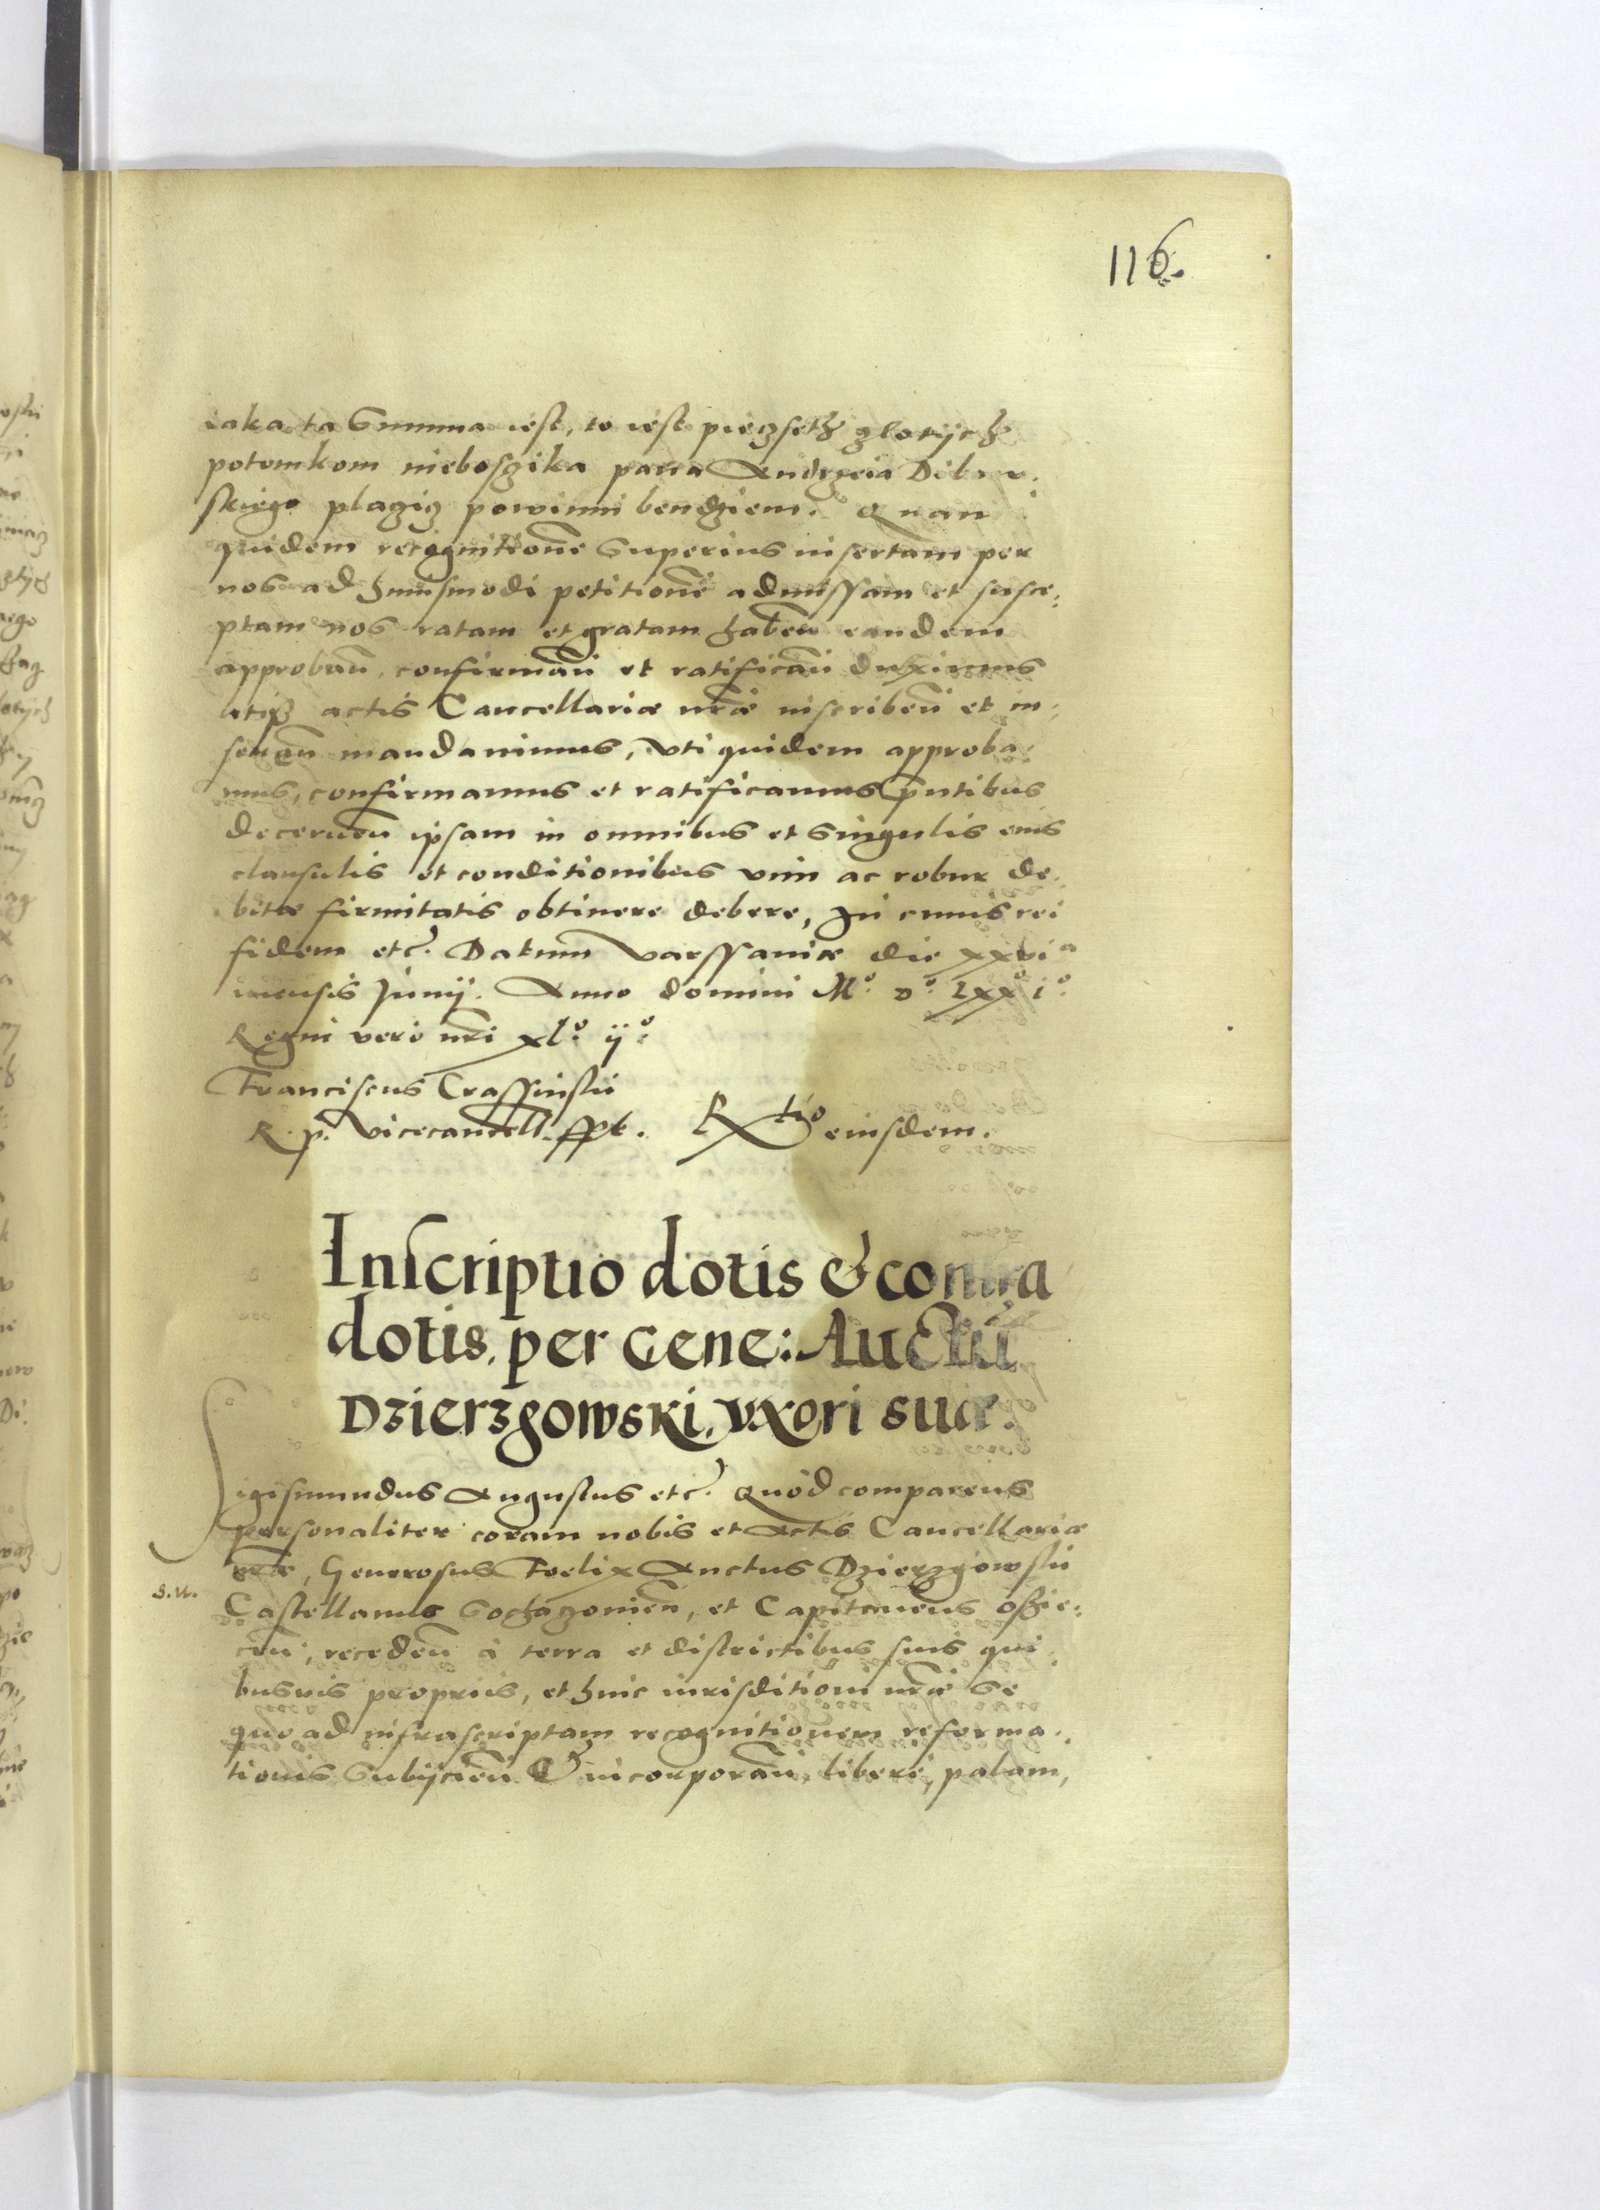 116.
iaka ta Summa iest, to iest pieczseth zlotijch
potomkom nieboszika pana Andrzeia
skiego placzicz powinni bendziem. Quan
quidem recognitionē Superius insertam per
nos ad huiusmodi petitionē admissam et susce:
ptam nos ratam et gratam haben̄ eandem
approban̄, confirmān et ratificān duximus
atq̢ actis Cancellariæ nr̄æ inscriben̄ et in:
seren̄ mandauimus, vti quidem approba:
mus, confirmamus et ratificamus p̄ntibus
decernen̄ ipsam in omnibus et Singulis eius
clausulis et conditionibus vim ac robur de:
bitæ firmitatis obtinere debere, In cuius rei
fidem etc̄. Datum Varssauiæ die xxvi a
mensis Junij. Anno domini Mº. Dº. Lxxº iº.
Regni vero nr̄i xlº. ijº.
Franciscus Crassinskii
R. p. Vicecancell. sspt. Rtio eiusdem.
Inscriptio dotis & contra
dotis, per Gene: Auctū
Dzierzgowski, vxori suæ.
Sigismundus Augustus etc̄. Quod comparens
personaliter coram nobis et Actis Cancellariæ
nr̄æ, Generosus Foelix Auctus Dzierzgowskii
S. W.
Castellanus Sochaczouien̄, et Capitaneus oszie:
cen̄, receden̄ à terra et districtibus suis qui:
busuis proprijs, et huic iurisditioni nr̄æ Se
quo ad infrascriptam recognitionem reforma:
tionis Subijcien̄ & incorporān, liberè, palam,